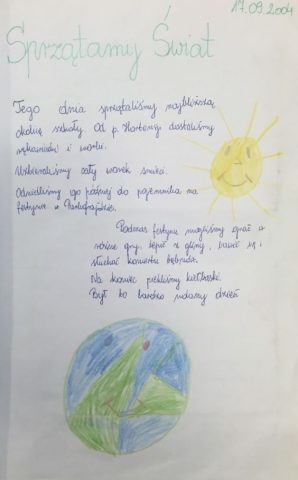 17.09.2004
Sprzątamy Świat
Tego dnia sprzątaliśmy najbliższą
okolicę szkoły. Od p. dostaliśmy
rękawiczki i worki.
Uzbieraliśmy cały worek śmieci.
Odnieśliśmy go później do pojemnika na
festynie w
Podczas festynu mogliśmy grać w
różne gry, lepić z gliny, bawić się i
słuchać koncertu
Na koniec piekliśmy kiełbaski.
Był to bardzo udany dzień